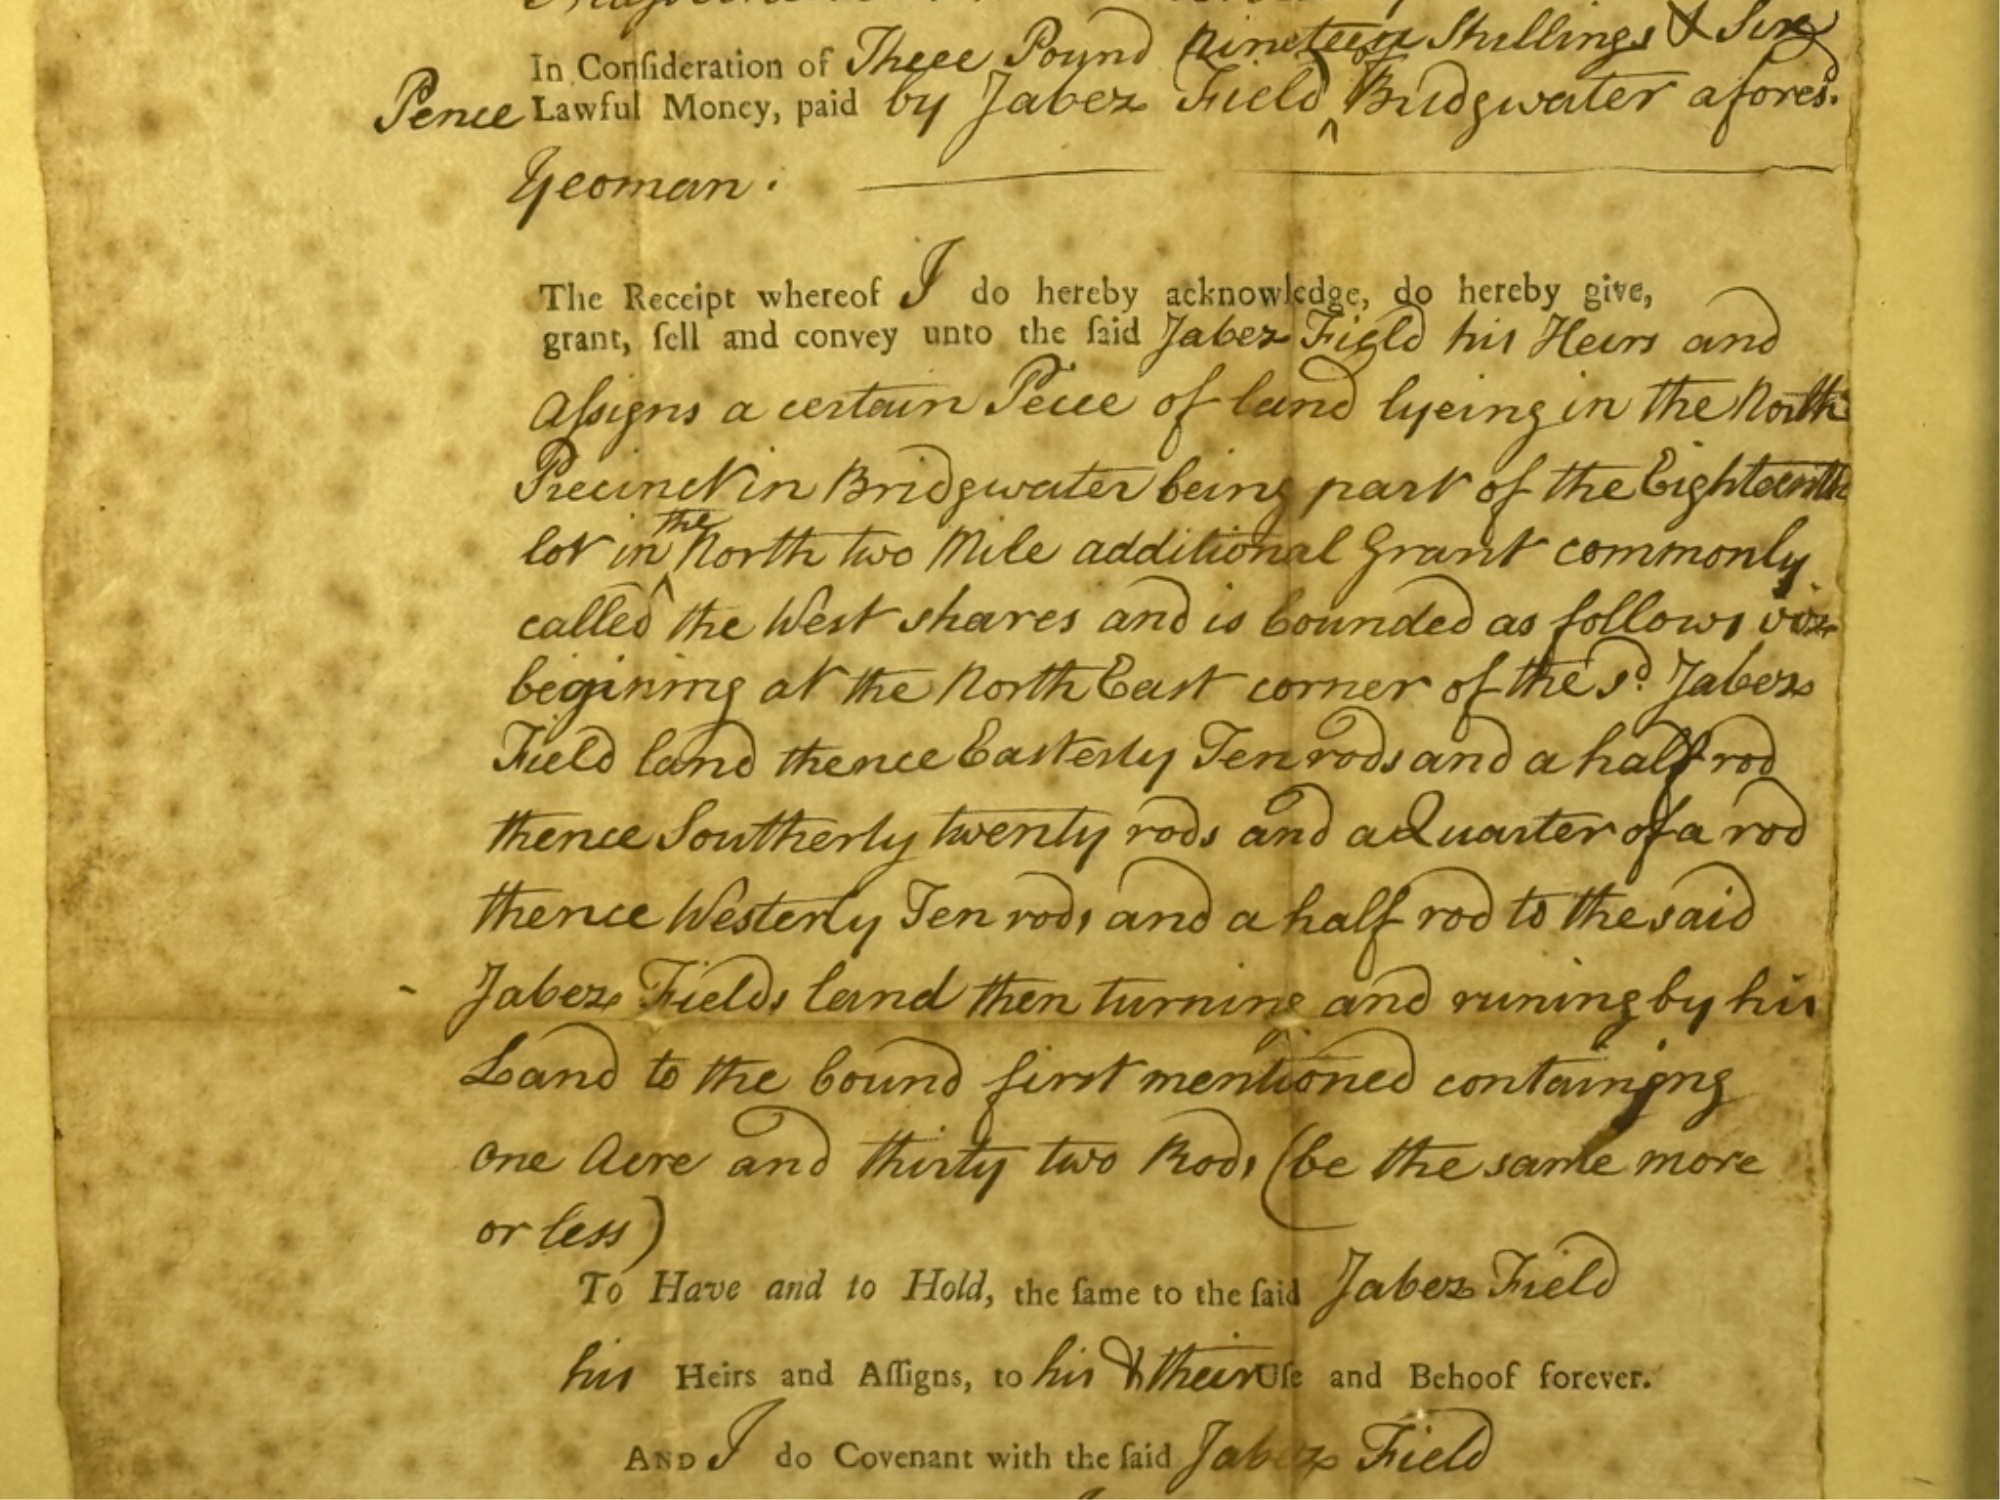 In Conſideration of Three Pound Nineteen Shillings & Six
Pence Lawful Money, paid by Jabez Field of Bridgwater afores.d
Yeoman.
The Receipt whereof I do hereby acknowledge, do hereby give,
grant, ſell and convey unto the ſaid Jabez Field his Heirs and
Aſsigns a certain Peice of land lyeing in the North
Precinct in Bridgwater being part of the Eighteenth
lot in the North two Mile additional Grant commonly
called the West shares and is bounded as follows viz
begining at the North East corner of the sd. Jabez
Field land thence Easterly Ten rods and a half rod
thence Southerly twenty rods and a Quarter of a rod
thence Westerly Ten rods and a half rod to the said
Jabez Fields land then turning and runing by his
Land to the bound first mentioned containing
one Acre and thirty two Rods (be the same more
or less)
To Have and to Hold, the ſame to the ſaid Jabez Field
his Heirs and Aſſigns, to his & their Uſe and Behoof forever.
AND I do Covenant with the ſaid Jabez Field